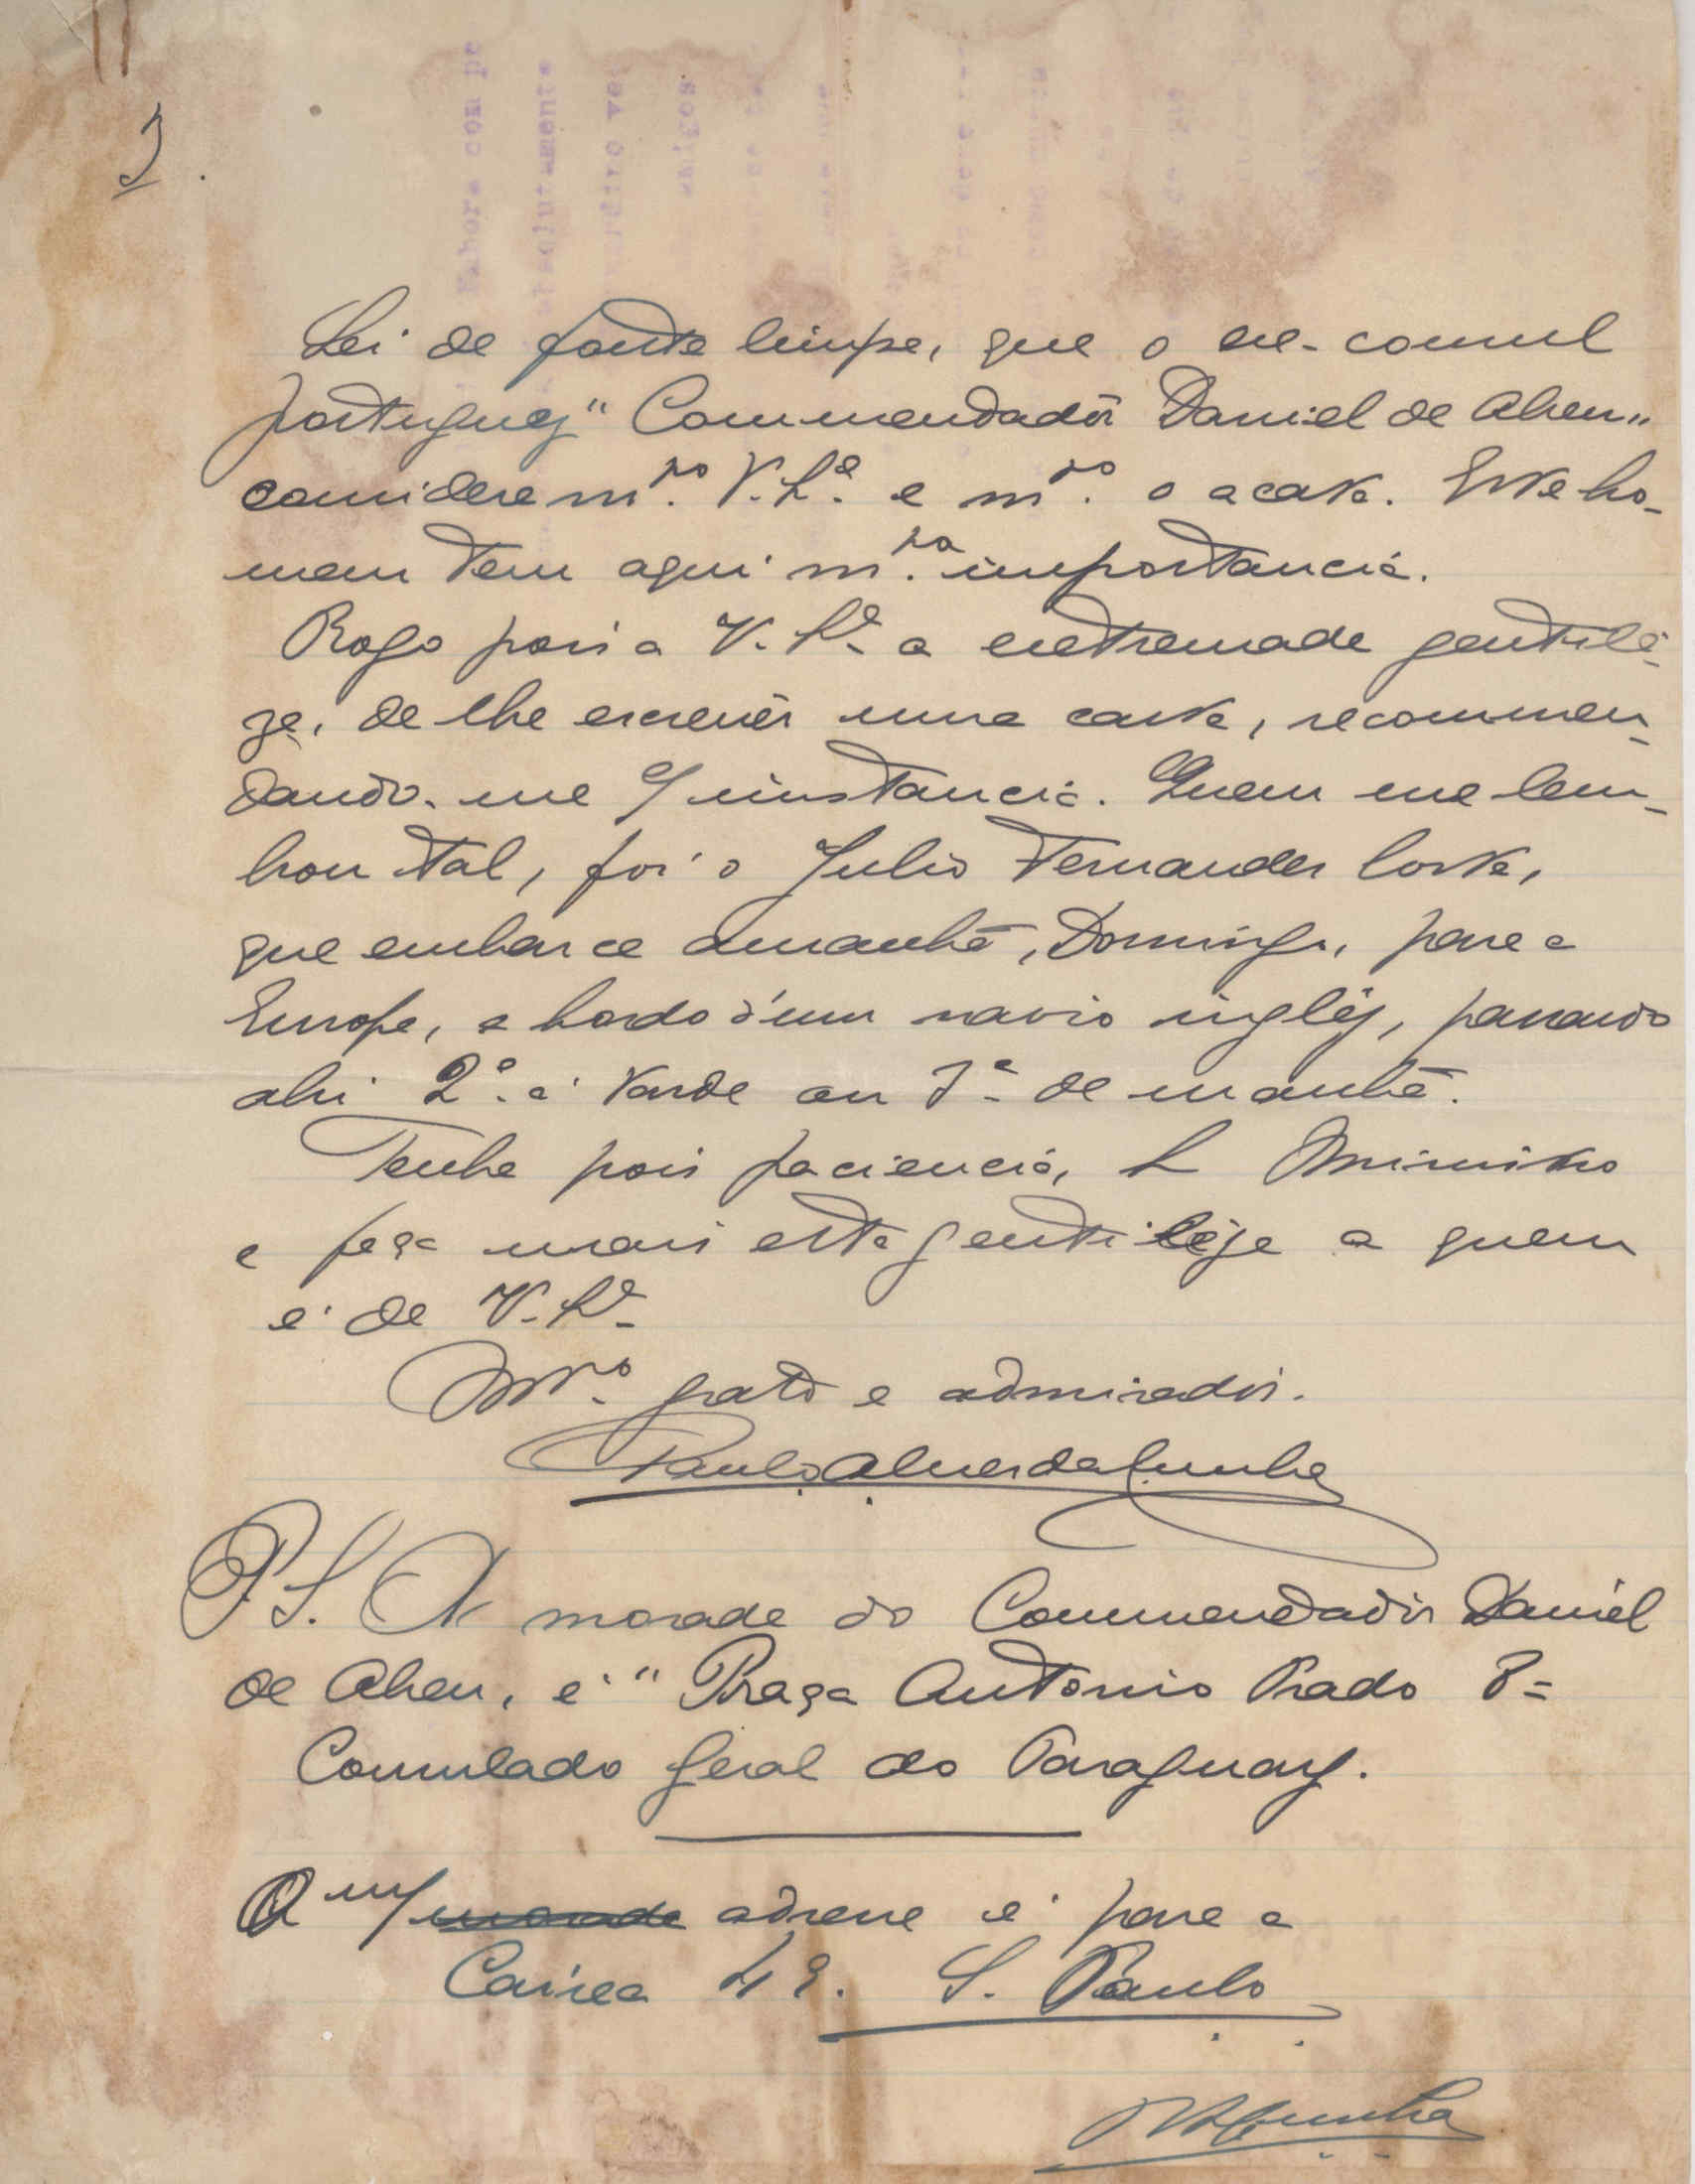 3.
Sei de fonte limpa, que o ex-consul
portuguez " Commendadôr Daniel de Abreu"
considera m.to V. S.ª e m.to o acata. Este ho-
mem tem aqui m.ta importancia.
Rogo pois a V. S.ª a extremada gentilê-
za, de lhe escrevêr uma carta, recommen-
dando-me c/ instancia. Quem me lem-
brou tal, foi o Julio Fernandes Costa,
que embarca amanhã, Domingo, para a
Europa, a bordo d'um navio inglêz, passando
ahi 2.ª á tarde ou 3.ª de manhã.
Tenha pois paciencia, S Ministro
e faça mais esta gentilêza a quem
é de V. S.ª
M.to grato e admiradôr.
Paulo Alves da Cunha
P.S. A morada do Commendadôr Daniel
de Abreu, é " Praça Antonio Prado 8=
Consulado Geral do Paraguay.
A m/ morada adresse é para a
Caixa 49. S. Paulo
PACunha